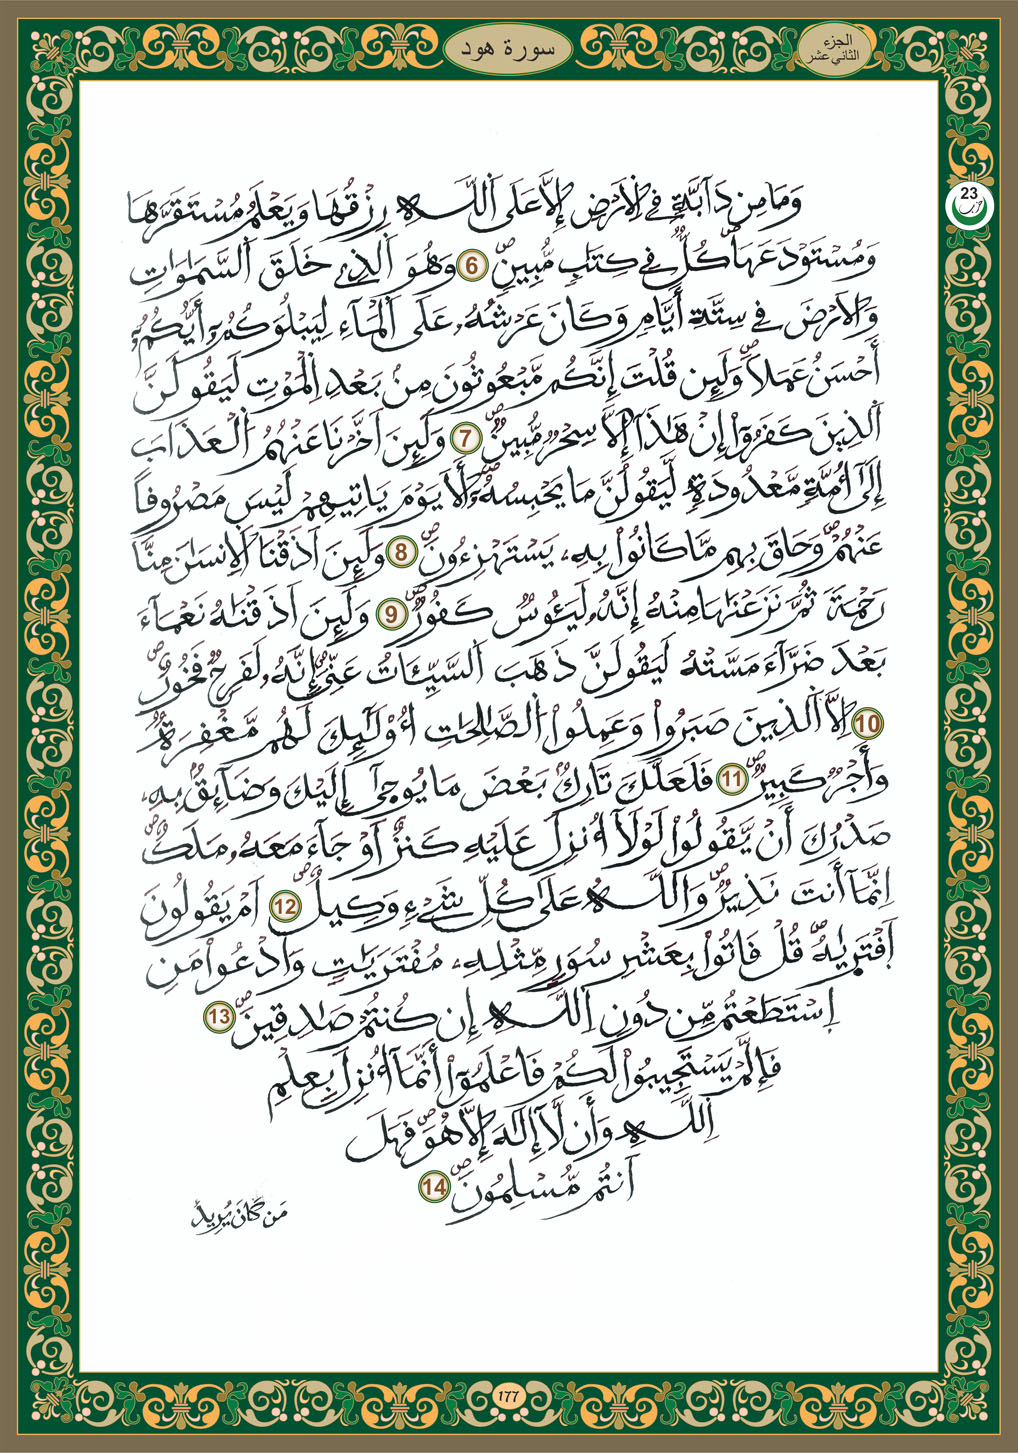 سورة هود
الجزء
الثاني عشر
23
حزب
وَمَا مِن دَآبَّةٍ فِے اِ۬لَارْضِ إِلَّا عَلَى اَ۬للَّهِ رِزْقُهَا وَيَعْلَمُ مُسْتَقَرَّهَا
وَمُسْتَوْدَعَهَاۖ كُلّٞ فِے كِتَٰبٖ مُّبِينٖۖ 6 وَهُوَ اَ۬لذِے خَلَقَ اَ۬لسَّمَٰوَٰتِ
وَالَارْضَ فِے سِتَّةِ أَيَّامٖ وَكَانَ عَرْشُهُۥ عَلَى اَ۬لْمَآءِ لِيَبْلُوَكُمُۥٓ أَيُّكُمُۥٓ
أَحْسَنُ عَمَلاٗۖ وَلَئِن قُلْتَ إِنَّكُم مَّبْعُوثُونَ مِنۢ بَعْدِ اِ۬لْمَوْتِ لَيَقُولَنَّ
اَ۬لذِينَ كَفَرُوٓاْ إِنْ هَٰذَآ إِلَّا سِحْرٞ مُّبِينٞۖ 7 وَلَئِنَ اَخَّرْنَا عَنْهُمُ اُ۬لْعَذَابَ
إِلَىٰٓ أُمَّةٖ مَّعْدُودَةٖ لَّيَقُولُنَّ مَا يَحْبِسُهُۥٓۖ أَلَا يَوْمَ يَاتِيهِمْ لَيْسَ مَصْرُوفاً
عَنْهُمْۖ وَحَاقَ بِهِم مَّا كَانُواْ بِهِۦ يَسْتَهْزِءُونَۖ 8 وَلَئِنَ اَذَقْنَا اَ۬لِانسَٰنَ مِنَّا
رَحْمَةٗ ثُمَّ نَزَعْنَٰهَا مِنْهُ إِنَّهُۥ لَيَـُٔوسٞ كَفُورٞۖ 9 وَلَئِنَ اَذَقْنَٰهُ نَعْمَآءَ
بَعْدَ ضَرَّآءَ مَسَّتْهُ لَيَقُولَنَّ ذَهَبَ اَ۬لسَّيِّـَٔاتُ عَنِّيَۖ إِنَّهُۥ لَفَرِحٞ فَخُورٌۖ
10 اِلَّا اَ۬لذِينَ صَبَرُواْ وَعَمِلُواْ اُ۬لصَّٰلِحَٰتِ أُوْلَٰٓئِكَ لَهُم مَّغْفِرَةٞ
وَأَجْرٞ كَبِيرٞۖ 11 فَلَعَلَّكَ تَارِكُۢ بَعْضَ مَا يُوح۪ىٰٓ إِلَيْكَ وَضَآئِقُۢ بِهِۦ
صَدْرُكَ أَنْ يَّقُولُواْ لَوْلَآ أُنزِلَ عَلَيْهِ كَنزٌ اَوْ جَآءَ مَعَهُۥ مَلَكٌۖ
اِنَّمَآ أَنتَ نَذِيرٞۖ وَاللَّهُ عَلَىٰ كُلِّ شَےْءٖ وَكِيلٌۖ 12 اَمْ يَقُولُونَ
اَ۪فْتَر۪يٰهُۖ قُلْ فَاتُواْ بِعَشْرِ سُوَرٖ مِّثْلِهِۦ مُفْتَرَيَٰتٖ وَادْعُواْ مَنِ
اِ۪سْتَطَعْتُم مِّن دُونِ اِ۬للَّهِ إِن كُنتُمْ صَٰدِقِينَۖ 13
فَإِلَّمْ يَسْتَجِيبُواْ لَكُمْ فَاعْلَمُوٓاْ أَنَّمَآ أُنزِلَ بِعِلْمِ
اِ۬للَّهِ وَأَن لَّآ إِلَٰهَ إِلَّا هُوَۖ فَهَلَ
اَنتُم مُّسْلِمُونَۖ 14
مَن كَانَ يُرِيدُ
177